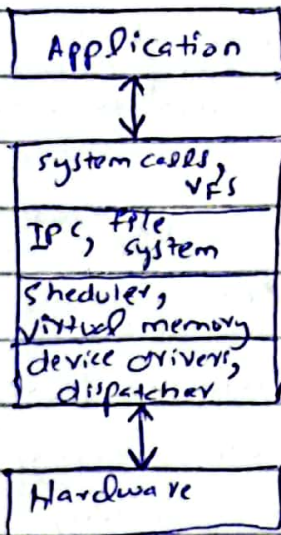 Application
system calls,
VFS
IPC, file
system
sheduler,
virtual memory
device drivers,
dispatcher
Hardware